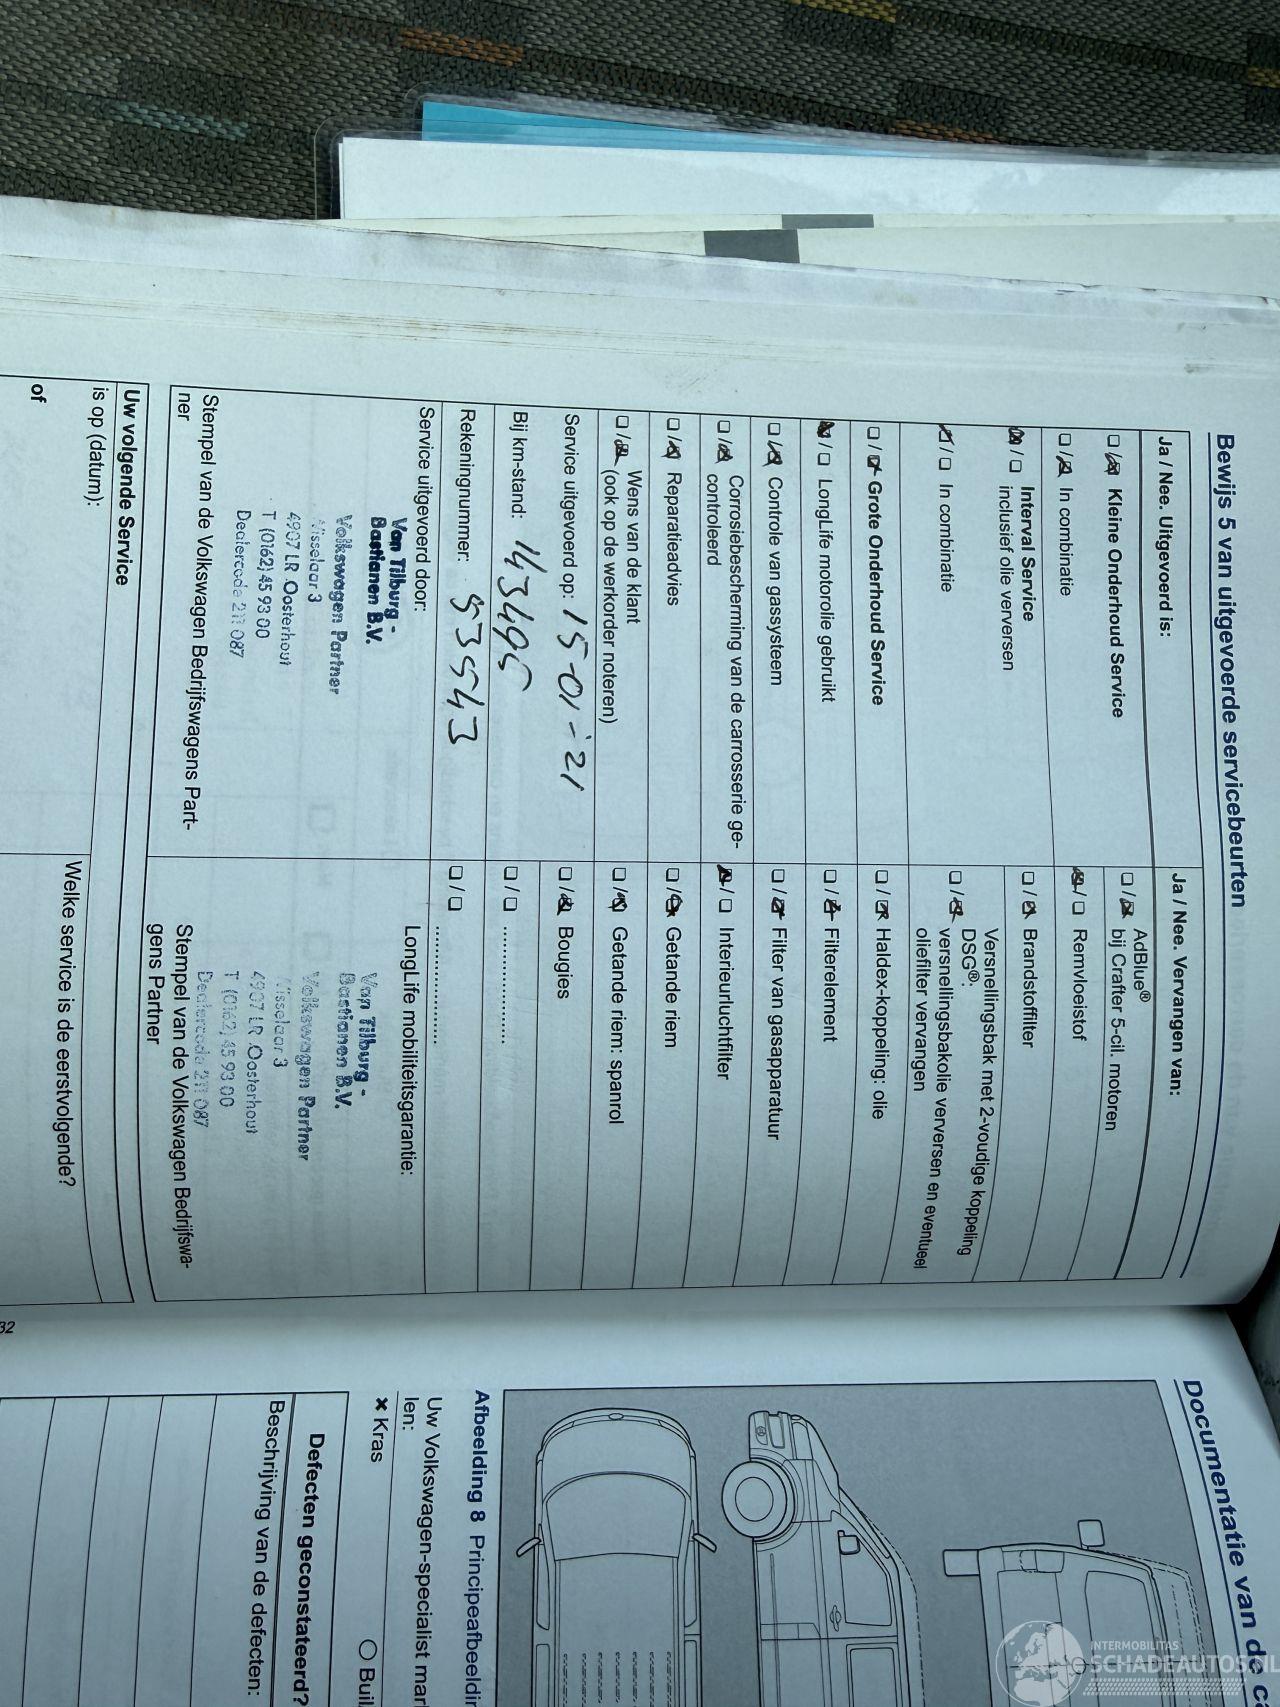 Bewijs 5 van uitgevoerde servicebeurten
Ja / Nee. Uitgevoerd is:
Kleine Onderhoud Service
In combinatie
Interval Service
inclusief olie verversen
In combinatie
Grote Onderhoud Service
LongLife motorolie gebruikt
Controle van gassysteem
Corrosiebescherming van de carrosserie ge-
controleerd
Reparatieadvies
Wens van de klant
(ook op de werkorder noteren)
Service uitgevoerd op: 15-01-'21
Bij km-stand: 143495
Rekeningnummer: 535543
Service uitgevoerd door:
Van Tilburg -
Bastianen B.V.
Volkswagen Partner
Visselaar 3
4907 LR Oosterhout
T (0162) 45 93 00
Dealercode 211 087
Stempel van de Volkswagen Bedrijfswagens Part-
ner
Ja / Nee. Vervangen van:
AdBlue®
bij Crafter 5-cil. motoren
Remvloeistof
Brandstoffilter
Versnellingsbak met 2-voudige koppeling
DSG®:
versnellingsbakolie verversen en eventueel
oliefilter vervangen
Haldex-koppeling: olie
Filterelement
Filter van gasapparatuur
Interieurluchtfilter
Getande riem
Getande riem: spanrol
Bougies
LongLife mobiliteitsgarantie:
Van Tilburg -
Bastianen B.V.
Volkswagen Partner
Visselaar 3
4907 LR Oosterhout
T (0162) 45 93 00
Dealercode 211 087
Stempel van de Volkswagen Bedrijfswa-
gens Partner
Uw volgende Service
is op (datum):
of
Welke service is de eerstvolgende?
32
Documentatie van de ca
Afbeelding 8 Principeafbeelding
Uw Volkswagen-specialist mar
len:
× Kras
Buil
Defecten geconstateerd?
Beschrijving van de defecten:
INTERMOBILITAS
SCHADEAUTOS.NL